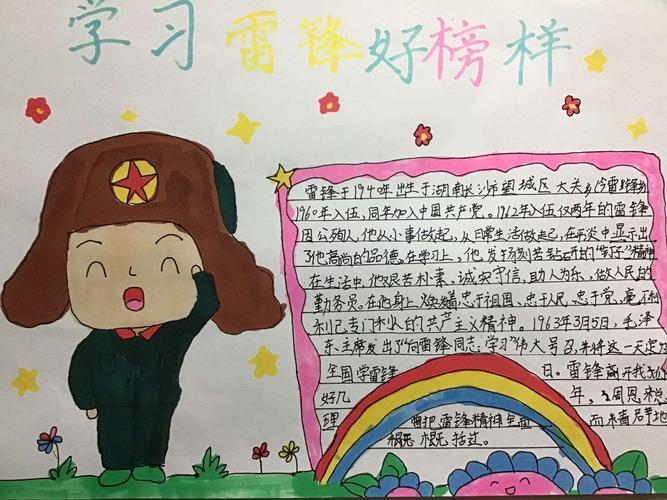 学习雷锋好榜样
雷锋于1940年出生于湖南长沙市望城区大关乡(今雷锋
1960年入伍,同年加入中国共产党。1962年入伍仅两年的雷锋
因公殉人,他从小事做起,从日常生活做起,在平淡中显示出
了他高尚的品德。在学习上,他发扬刻苦钻研的"钉子"精神
在生活中,他艰苦朴素,诚实守信,助人为乐,做人民的
勤务员。在他身上焕着忠于祖国、忠于人民、忠于党,毫不利
利己专门利人的共产主义精神。1963年3月5日,毛泽
东主席发出了"向雷锋同志学习"伟大号召,并将这一天定为
全国学雷锋 日。雷锋离开我们
好几 年,周恩来总
理 曾把雷锋精神全面 而精辟地
概括过。